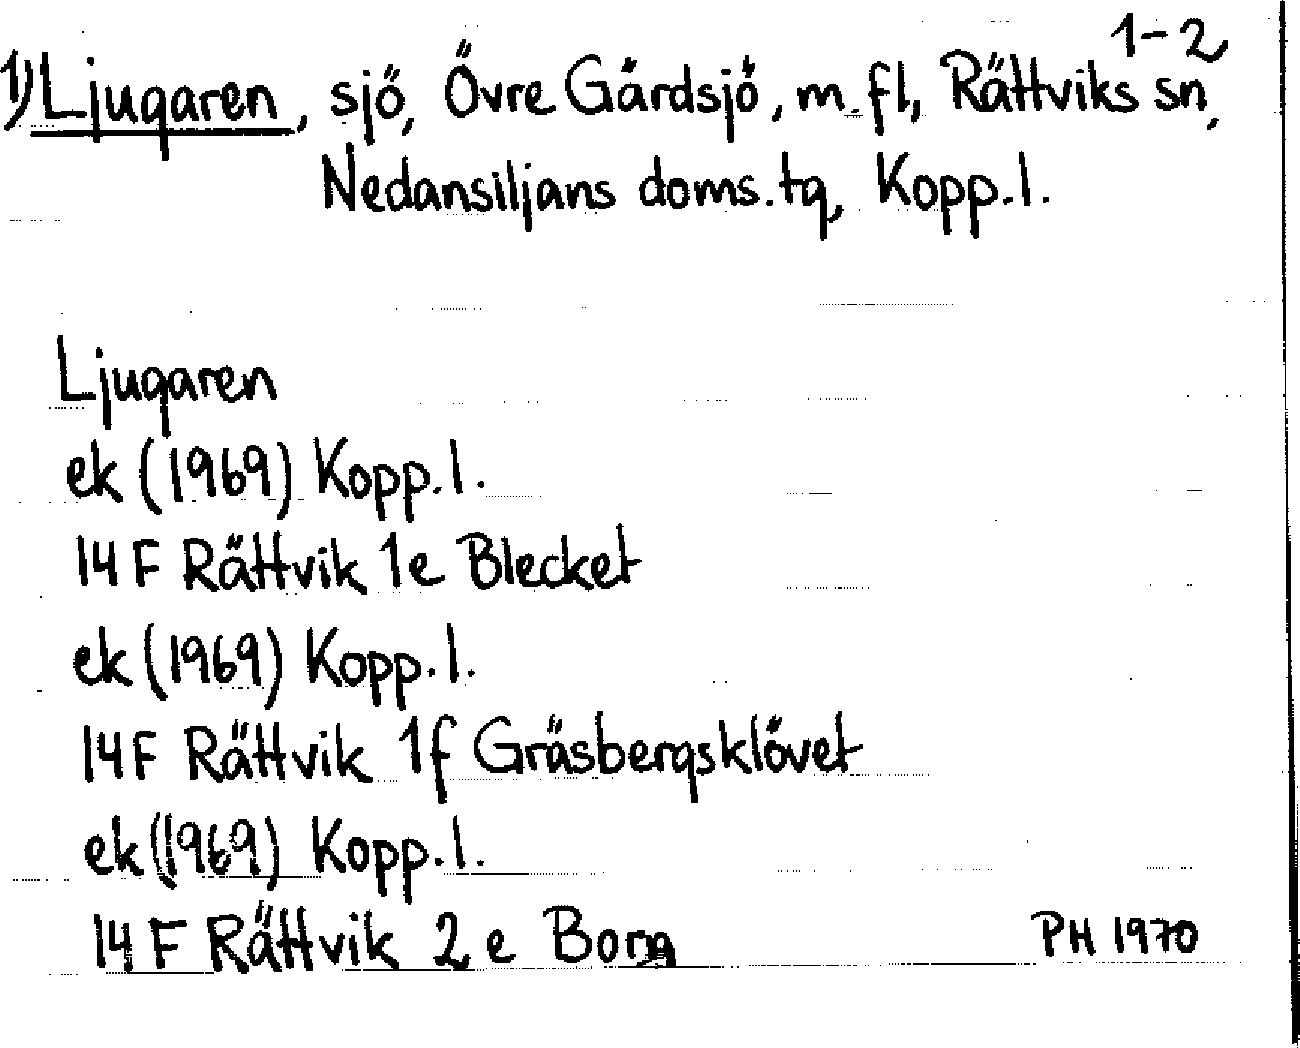 1-2
1) Ljugaren, sjö, Övre Gärdsjö, m.fl, Rättviks sn,
Nedansiljans doms.tg, Kopp.l.
Ljugaren
ek (1969) Kopp.l.
14 F Rättvik 1e Blecket
ek (1969) Kopp.l.
14 F Rättvik 1f Gräsbergsklövet
ek (1969) Kopp.l.
14 F Rättvik 2e Borg
PH 1970